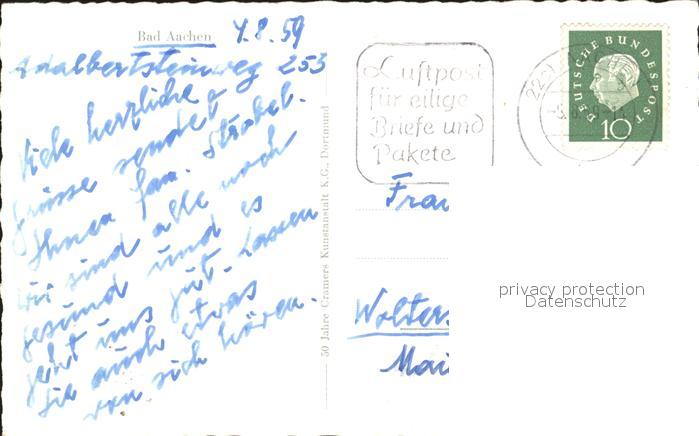 Bad Aachen 4.8.59
Adalbertsteinweg 253
Viele herzliche
Grüsse sendet
Ihnen fam. Strobel.
Wir sind alle noch
gesund und es
geht uns gut. Lassen
Sie auch etwas
von sich hören.
50 Jahre Cramers Kunstanstalt K.G., Dortmund
Luftpost
für eilige
Briefe und
Pakete
DEUTSCHE BUNDESPOST
10
Frau
Wolters
Mai
privacy protection
Datenschutz